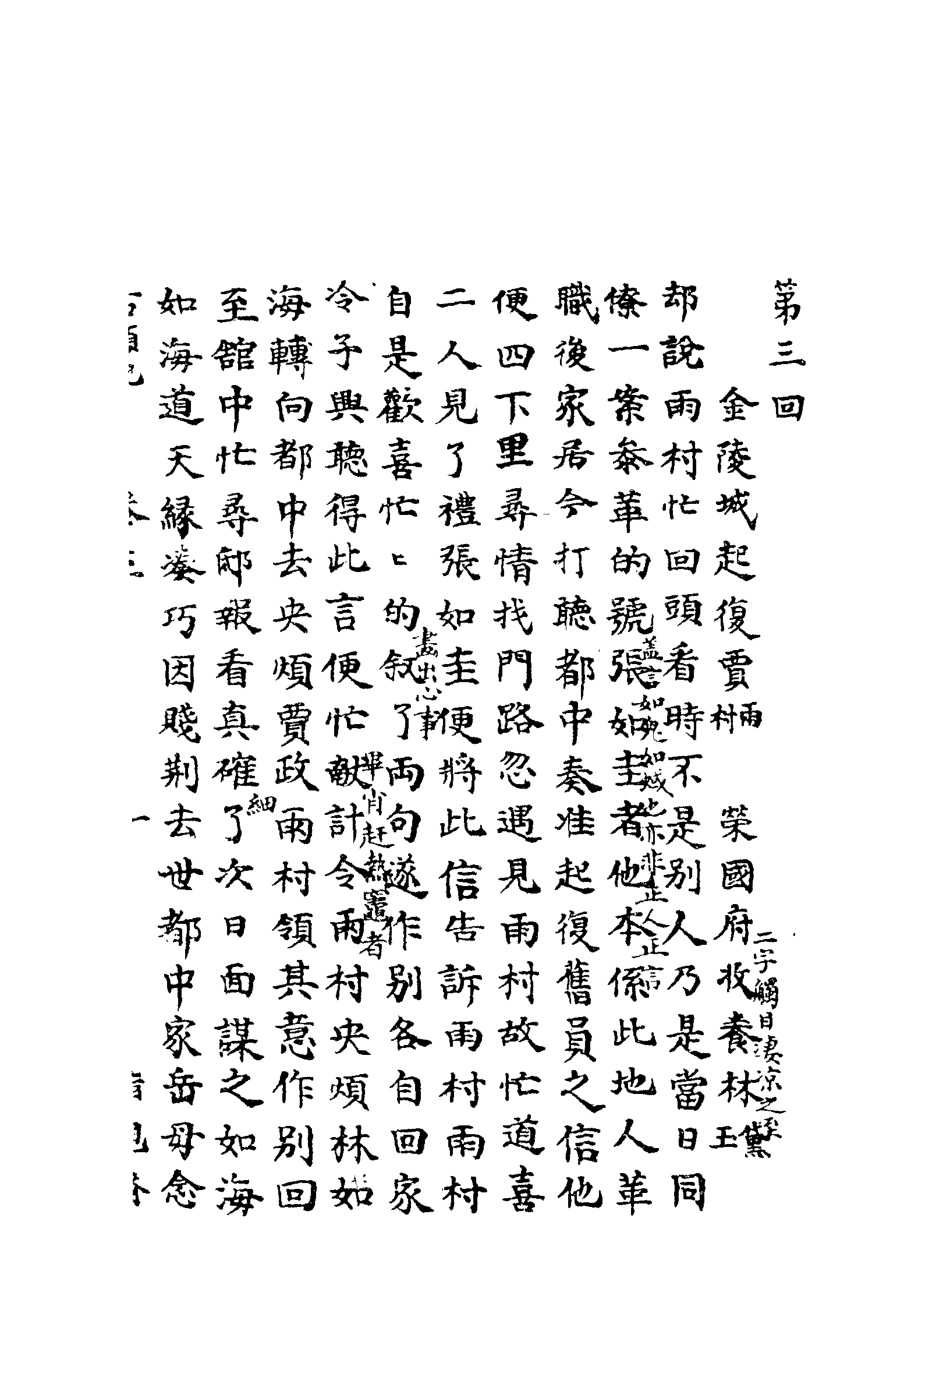 第三回
金陵城起復賈雨村　榮國府收養林黛玉
二字觸目淒涼之至
却說雨村忙回頭看時不是別人乃是當日同
僚一案參革的號張如圭者他本係此地人革
蓋言如鬼如蜮也亦非正人正信
職後家居今打聽都中奏准起復舊員之信他
便四下里尋情找門路忽遇見雨村故忙道喜
二人見了禮張如圭便將此信告訴雨村雨村
自是歡喜忙匕的叙了両句遂作别各自回家
畫出心事
冷子興聽得此言便忙献計令雨村央煩林如
畢肖赶熱竈者
海轉向都中去央煩賈政雨村領其意作别回
至舘中忙尋邸報看真確了次日面謀之如海
細
如海道天緣湊巧因賤荆去世都中家岳母念